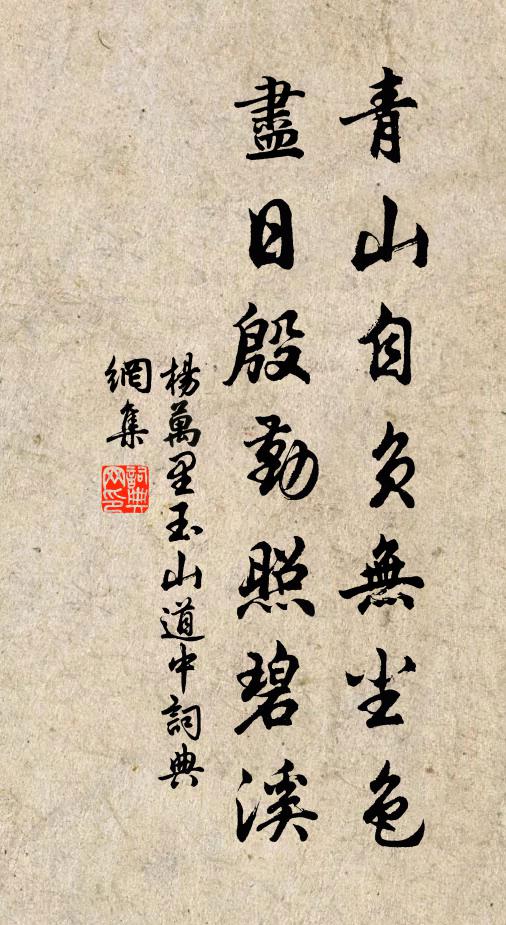 青山自負無塵色
盡日殷勤照碧溪
楊萬里玉山道中詞典
網集
詞典
网印